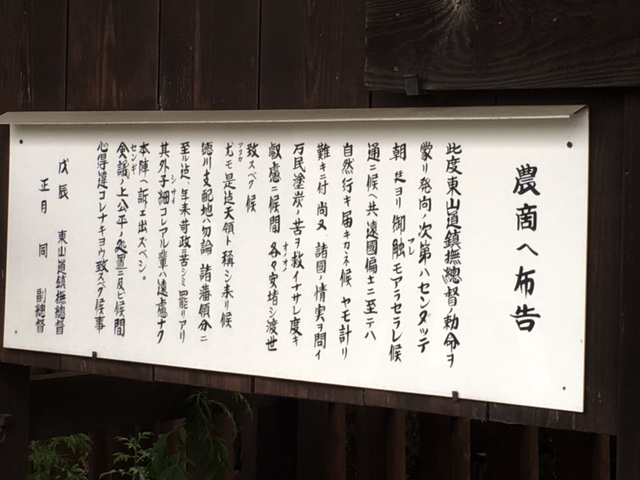 農商ヘ布告
此度東山道鎮撫總督ノ勅命ヲ
蒙リ発向ノ次第ハセンダッテ
朝廷ヨリ御触モアラセラレ候
フレ
通ニ候ヘ共遠國偏土ニ至テハ
自然行キ届キカネ候ヤモ計リ
難キニ付尚又諸國ノ情実ヲ問イ
万民塗炭ノ苦ヲ救イナサレ度キ
叡慮ニ候間各々安堵シ渡世
オノオノ
致スベク候
尤モ是迠天領ト称シ来リ候
徳川支配地ハ勿論諸藩領分ニ
至ル迠、年来苛政ニ苦シミ罷リアリ
其外子細コレアル輩ハ遠慮ナク
シサイ
本陣ヘ訴エ出ズベシ。
僉議ノ上公平ノ処置ニ及ビ候間
センギ
心得違コレナキヨウ致スベク候事
戊辰 東山道鎮撫總督
正月 同 副總督